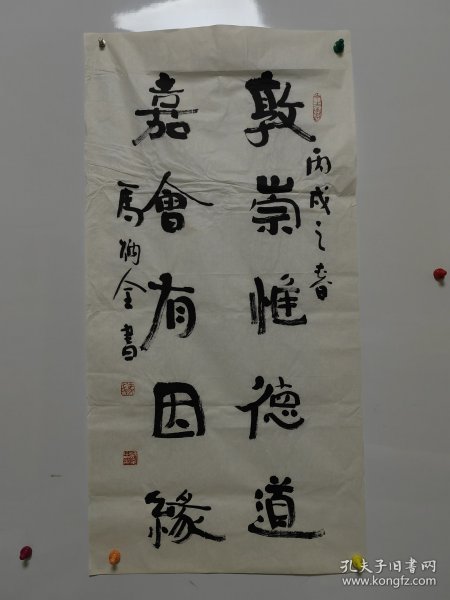 丙戌之春
敦崇惟德道
嘉會有因緣
馬炳全書
孔夫子旧书网
www.kongfz.com